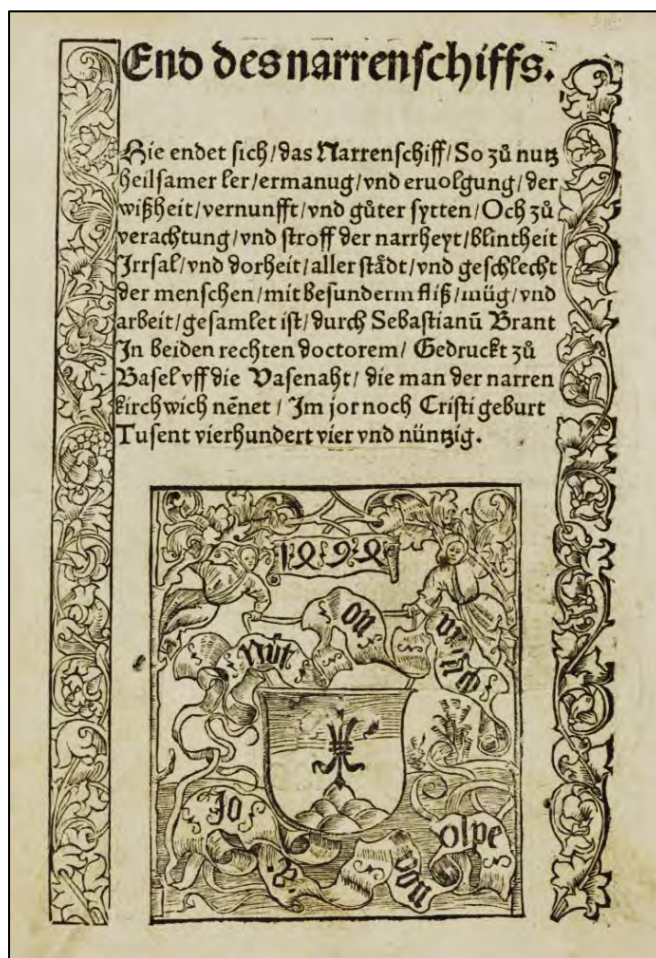 End des narrenschiffs.
Hie endet sich/das Narrenschiff/So zů nutz
heilsamer ler/ermanug/vnd eruolgung/der
wißheit/vernunfft/vnd gůter sytten/Och zů
verachtung/vnd stroff der narrheyt/blintheit
Irrsal/vnd dorheit/aller städt/vnd geschlecht
der menschen/mit besunderm fliß/müg/vnd
arbeit/gesamlet ist/durch Sebastianū Brant
In beiden rechten doctorem/ Gedruckt zů
Basel vff die Vasenaht/ die man der narren
kirchwich nēnet/ Im jor noch Cristi geburt
Tusent vierhundert vier vnd nüntzig.
1494
Nüt on vrsach
Jo B. von olpe